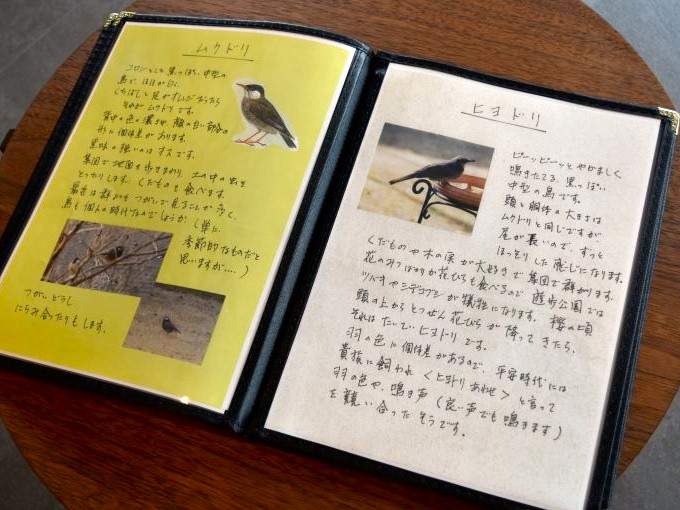 ムクドリ
コロンとした黒っぽい中型の
鳥で、ほほが白く、
くちばしと足がオレンジだったら
それが ムクドリです。
背中の色の濃さや、顔の白い部分の
形に個体差があります。
黒味の強いのはオスです。
集団で地面を歩きまわり、土の中の虫を
とったりします。くだものも食べます。
最近は群れよりつがいで見ることが多く、
鳥も個人の時代なのでしょうか(単に
季節的なものだと
思いますが…。)
つがいどうし
にらみ合ったりもします。
ヒヨドリ
ピーッピーッとやかましく
鳴きたてる、黒っぽい
中型の鳥です。
頭と胴体の大きさは
ムクドリと同じですが
尾が長いので、ずっと
ほっそりした感じになります。
くだものや木の実が大好きで集団で群がります。
花のみつばかりか花びらも食べるので 遊歩公園では
ツバキやシデコブシが犠牲になります。桜の頃
頭の上からとつぜん花びらが降ってきたら、
それはたいてい ヒヨドリです。
羽の色に個体差があるので、平安時代には
貴族に飼われ <ヒヨドリあわせ> と言って
羽の色や、鳴き声(良い声でも鳴きます)
を競い合ったそうです。